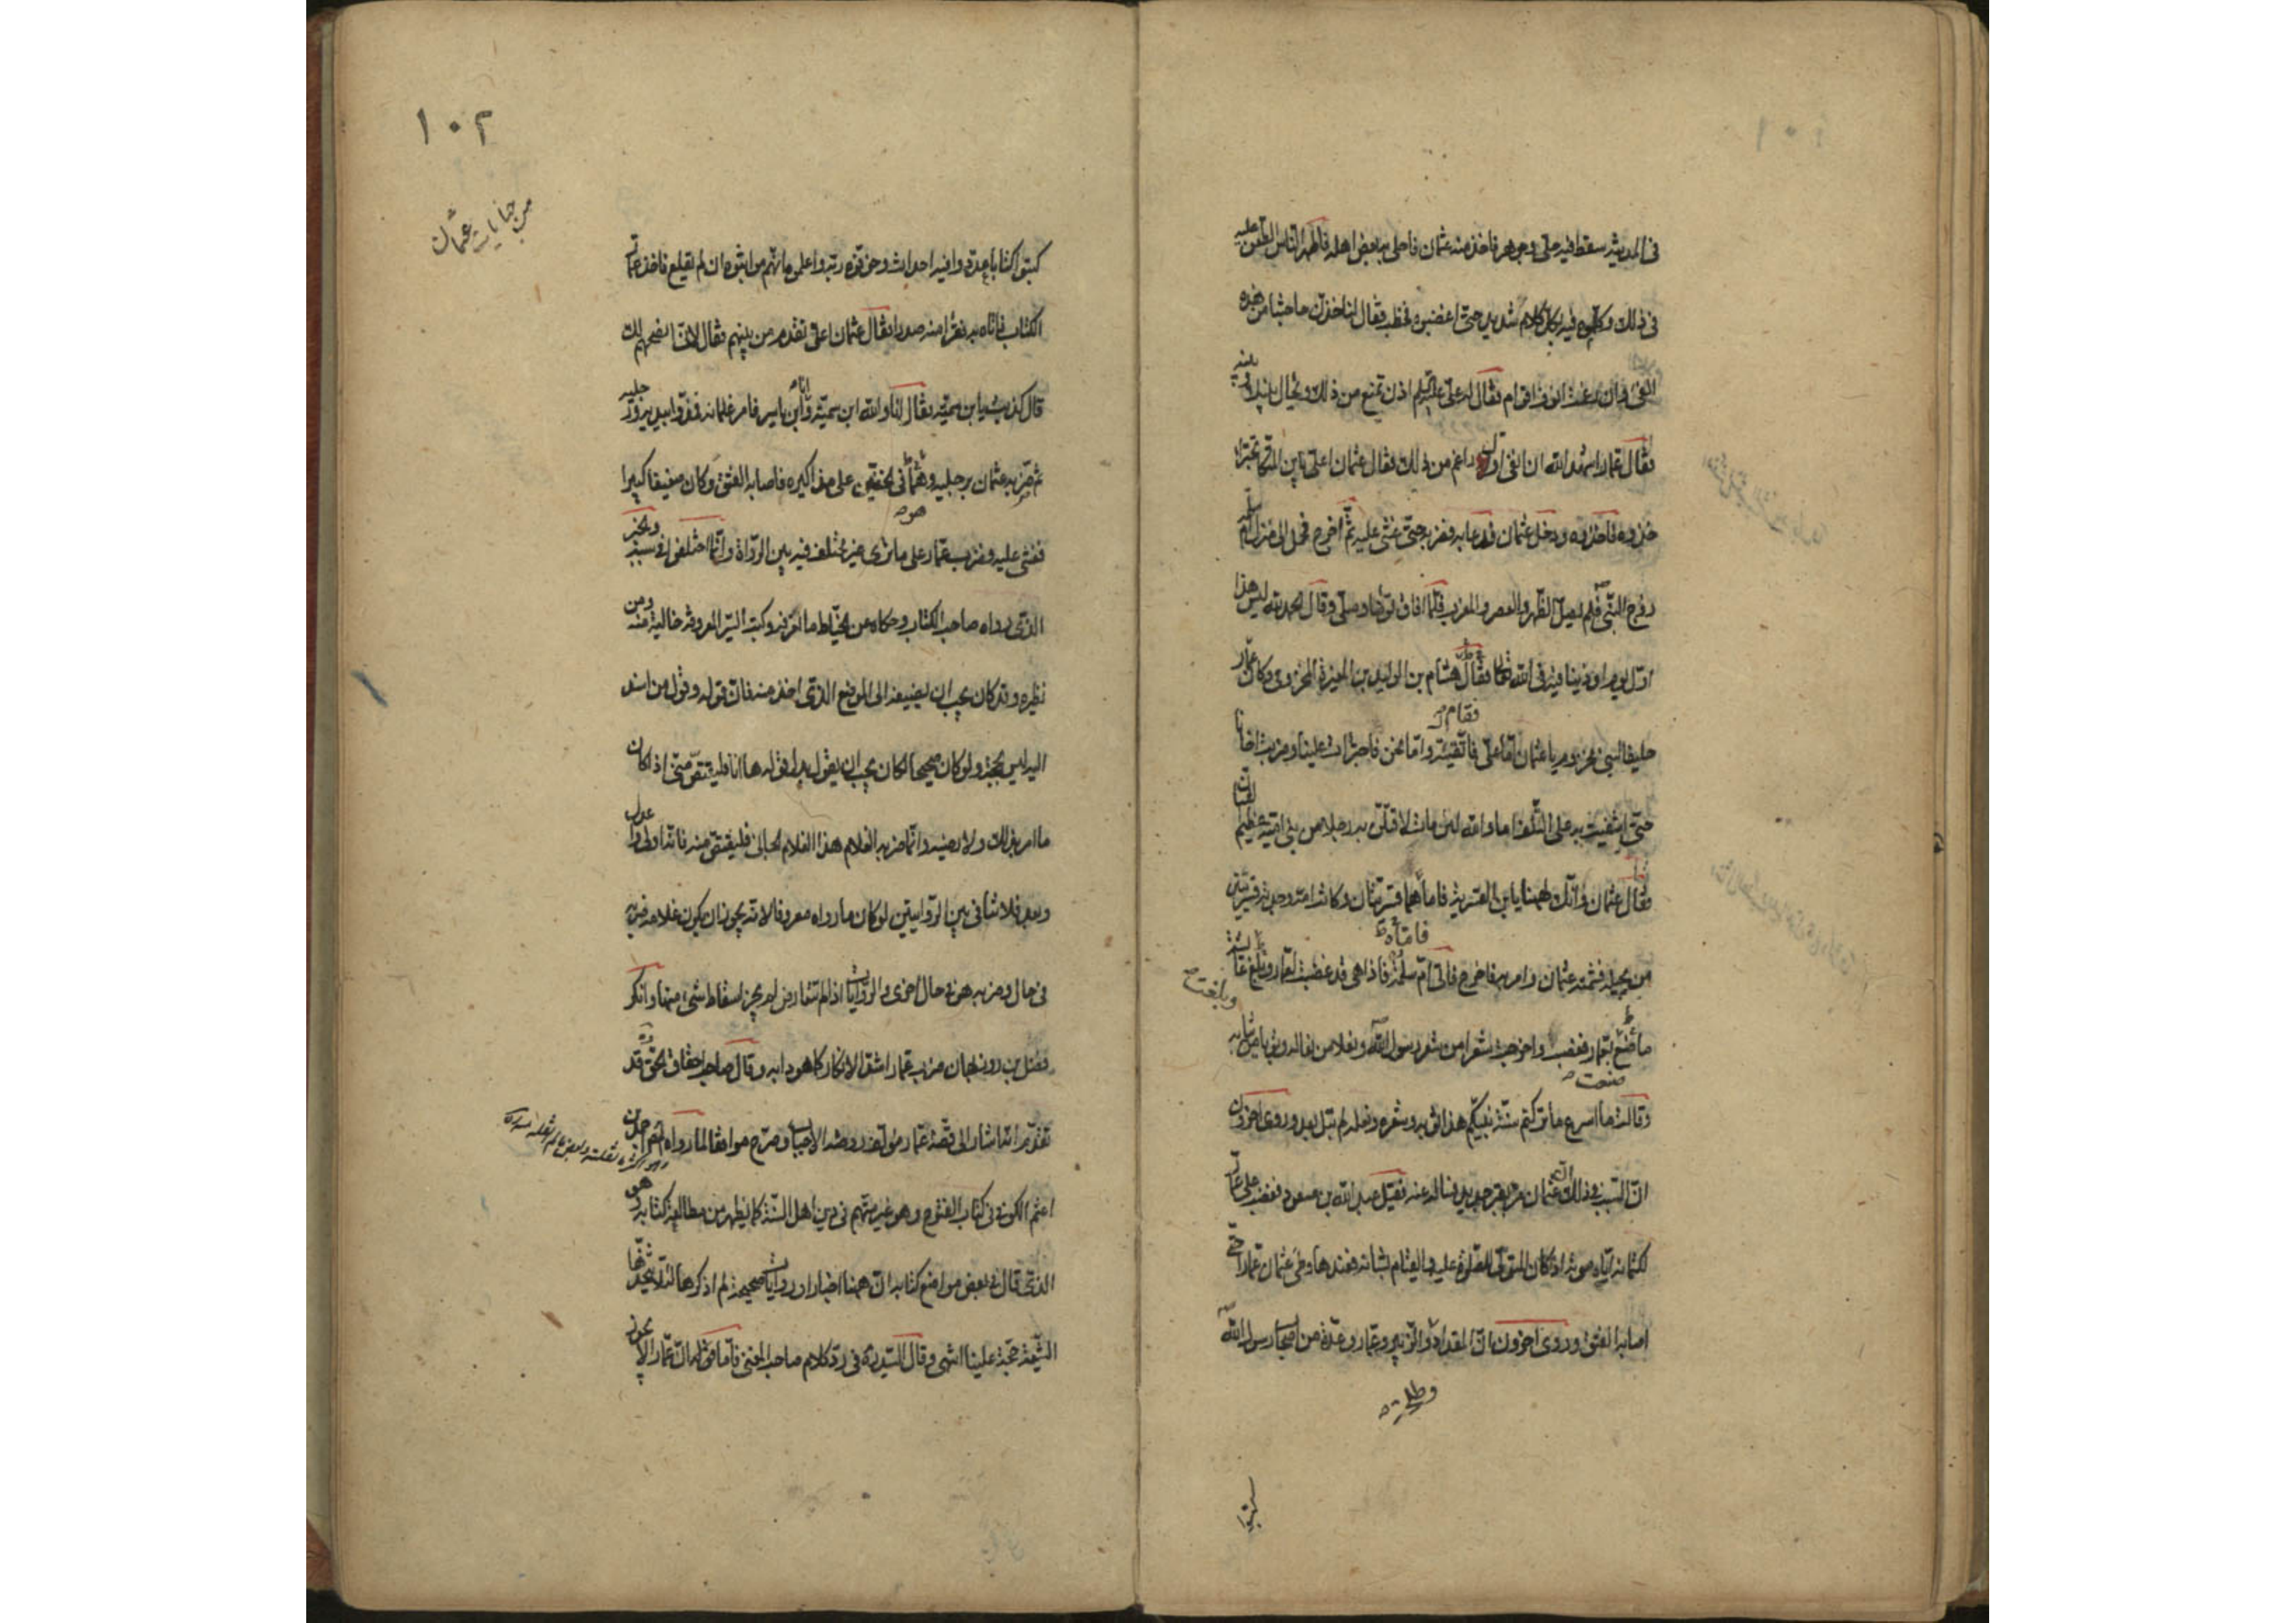 فى المدينة سفط فيه حلى وجوهر فاخذ منه عثمان فاحلى به بعض اهله فاظهر الناس الطعن عليه
فى ذلك وكلموه فيه بكل كلام شديد حتى اغضبوه فخطب فقال لناخذن حاجتنا من هذا
الفئ وان رغمت انوف اقوام فقال له على عليه السلم اذن تمنع من ذلك ويحال بينك وبينه
فقال عمار اشهد الله ان انفى اول راغم من ذلك فقال عثمان اعلى يابن المتكا تجترئ
خذوه فاخذوه ودخل عثمان فدعا به فضربه حتى غشى عليه ثم اخرج فحمل الى منزل ام سلمة
زوج النبى فلم يصل الظهر والعصر والمغرب فلما افاق توضأ وصلى وقال الحمد لله ليس هذا
اول يوم اوذينا فيه فى الله تعالى فقال هشام بن الوليد بن المغيرة المخزومى وكان عمار
فقام
حليفا لبنى مخزوم يا عثمان اما على فاتقيته واما نحن فاجترات علينا وضربت اخانا
حتى اشفيت به على التلف اما والله لئن مات لاقتلن به رجلا من بنى امية عظيم الشان
فقال عثمان وانك لههنا يابن القسرية فانهما قسريتان وكانت امه وجدته قسريتين
فاماه
من بجيلة فشتمه عثمان وامر به فاخرج فاتى ام سلمة فاذا هى قد غضبت لعمار وبلغ عائشة
وبلغت
ما صنع بعمار فغضبت واخرجت شعرا من شعر رسول الله ونعلا من نعاله وثوبا من ثيابه
صنعت
وقالت ما اسرع ما تركتم سنة نبيكم هذا ثوبه وشعره ونعله لم يبل بعد وروى اخرون
ان السبب فى ذلك ان عثمان مر بقبر جديد فسال عنه فقيل عبد الله بن مسعود فغضب على عمار
لكتمانه اياه موته اذ كان المتولى للصلوة عليه والقيام بشانه فعندها وطئ عثمان عمارا حتى
اصابه الفتق وروى اخرون ان المقداد والزبير وعمار وعدة من اصحاب رسول الله
وطلحة
كتبوا
١٠٢
من جنايات عثمان
كتبوا كتابا عددوا فيه احداث وخوفوه ربه واعلموه انهم مواثبوه ان لم يقلع فاخذ عمار
الكتاب فاتاه به فقرأ منه صدرا فقال عثمان اعلى تقدم من بينهم فقال لانى انصحهم لك
قال كذبت يا بن سمية فقال انا والله ابن سمية وانا ابن ياسر فامر غلمانه فمدوا بيديه ورجليه
ثم ضربه عثمان برجليه وهما فى الخفين على مذاكيره فاصابه الفتق وكان ضعيفا كبيرا
فغشى عليه وضرب عمار على ماترى غير مختلف فيه بين الرواة وانما اختلفوا فى سببه والخبر
الذى رواه صاحب الكتاب وحكاه عن الخياط ما نعرفه وكتب السير المعروفة خالية منه ومن
نظيره وقد كان يجب ان يضيفه الى الموضع الذى اخذ منه فان قوله وقول من اسند
اليه ليس بحجة ولو كان صحيحا لكان يجب ان يقول بدل قوله ها انا فليقتص منى اذا كان
ما امر بذلك ولا رضيه وانما ضربه الغلام هذا الغلام الجانى فليقتص منه فانه اولى واعدل
وبعد فلا تنافى بين الروايتين لو كان ما رواه معروفا لانه يجوز ان يكون غلامه ضربه
فى حال وضربه هو فى حال اخرى والروايات اذا لم تتعارض لم يجز اسقاط شئ منها وانكر
فضل بن روزبهان ضرب عمار اشد الانكار كما هو دابه وقال صاحب احقاق الحق قد
تقدم انه اشار الى قصة عمار مؤلف روضة الاحباب وصرح موافقا لما رواه احمد بن
اعثم الكوفى فى كتاب الفتوح وهو غير متهم فى دين اهل السنة كما يظهر من مطالعة كتابه وهو
الذى قال فى بعض مواضع كتابه ان ههنا اخبارا وروايات صحيحة لم اذكرها لئلا يتخذها
الشيعة حجة علينا انتهى وقال السيد ره فى رد كلام صاحب المغنى فاما قوله ان عمارا لا يجوز